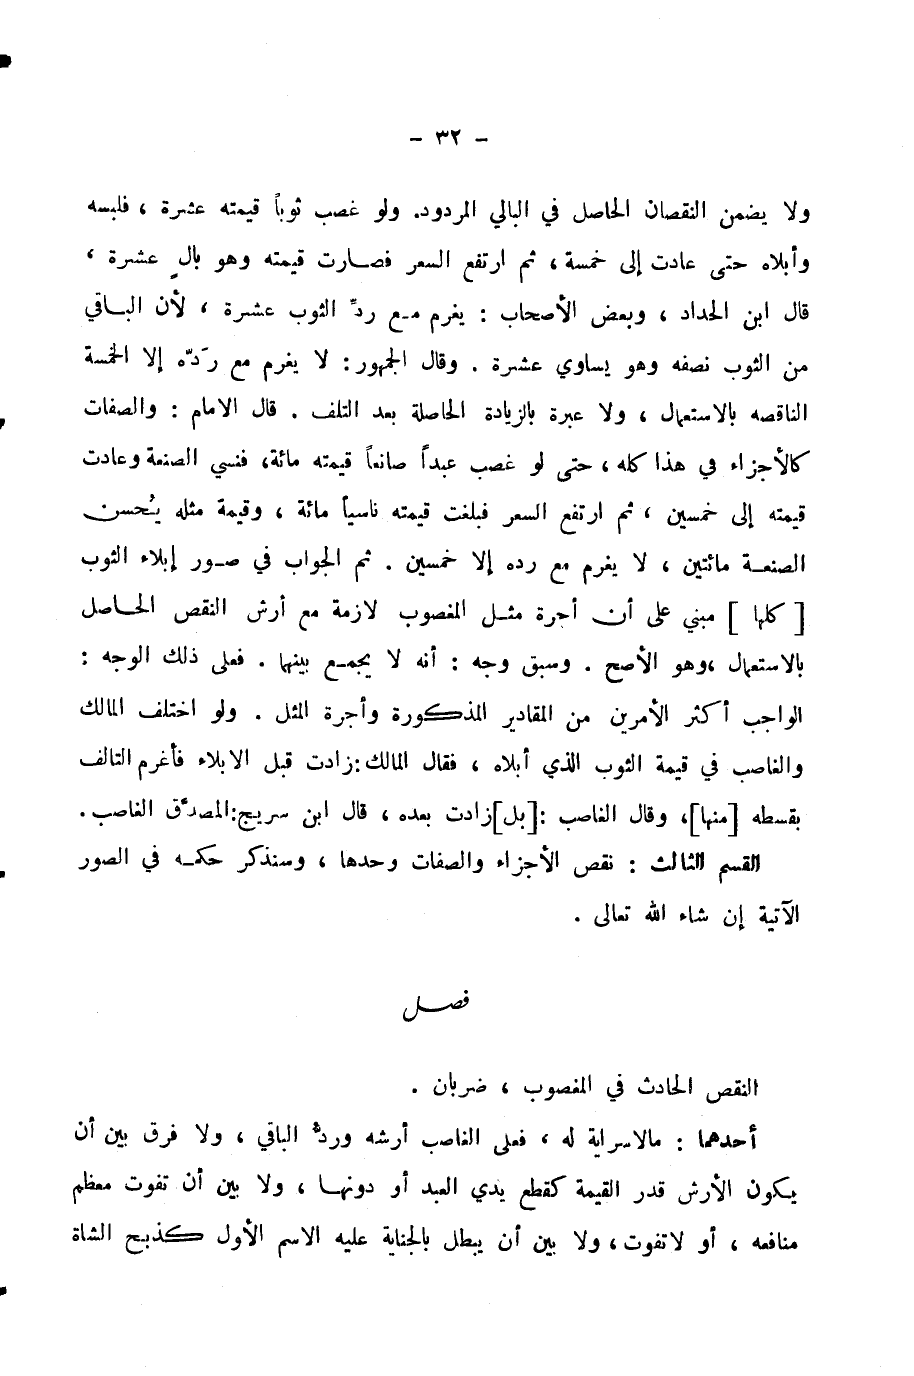 - ٣٢ -
ولا يضمن النقصان الحاصل في البالي المردود. ولو غصب ثوباً قيمته عشرة ، فلبسه
وأبلاه حتى عادت إلى خمسة ، ثم ارتفع السعر فصارت قيمته وهو بالٍ عشرة ،
قال ابن الحداد ، وبعض الأصحاب : يغرم مع ردِّ الثوب عشرة ، لأن الباقي
من الثوب نصفه وهو يساوي عشرة . وقال الجمهور : لا يغرم مع رَدّه إلا الخمسة
الناقصه بالاستعمال ، ولا عبرة بالزيادة الحاصلة بعد التلف . قال الامام : والصفات
كالأجزاء في هذا كله ، حتى لو غصب عبداً صانعاً قيمته مائة، فنسي الصنعة وعادت
قيمته إلى خمسين ، ثم ارتفع السعر فبلغت قيمته ناسياً مائة ، وقيمة مثله يُحسن
الصنعة مائتين ، لا يغرم مع رده إلا خمسين . ثم الجواب في صور إبلاء الثوب
[ كلها ] مبني على أن أجرة مثل المغصوب لازمة مع أرش النقص الحاصل
بالاستعمال ،وهو الأصح . وسبق وجه : أنه لا يجمع بينها . فعلى ذلك الوجه :
الواجب أكثر الأمرين من المقادير المذكورة وأجرة المثل . ولو اختلف المالك
والغاصب في قيمة الثوب الذي أبلاه ، فقال المالك:زادت قبل الابلاء فأغرم التالف
بقسطه [منها]، وقال الغاصب :[بل]زادت بعده ، قال ابن سريج:المصدَّق الغاصب .
القسم الثالث : نقص الأجزاء والصفات وحدها ، وسنذكر حكمه في الصور
الآتية إن شاء الله تعالى .
فصل
النقص الحادث في المغصوب ، ضربان .
أحدهما : مالاسراية له ، فعلى الغاصب أرشه وردُّ الباقي ، ولا فرق بين أن
يكون الأرش قدر القيمة كقطع يدي العبد أو دونها ، ولا بين أن تفوت معظم
منافعه ، أو لاتفوت ، ولا بين أن يبطل بالجناية عليه الاسم الأول كذبح الشاة